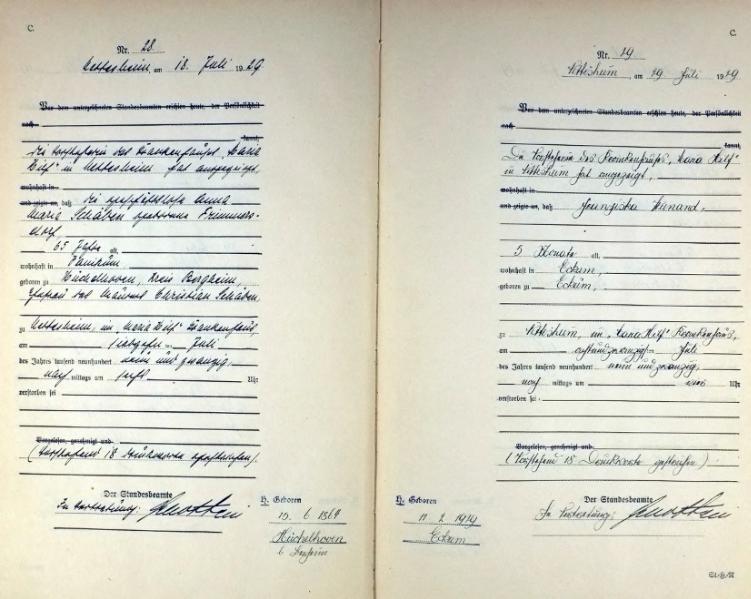 C.
Nr. 28
Nettesheim, am 18. Juli 1929
Vor dem unterzeichneten Standesbeamten erschien heute, der Persönlichkeit
nach
kannt,
Die Vorsteherin des Krankenhauses „Maria
Hilf" in Nettesheim hat angezeigt,
wohnhaft in
und zeigte an, daß die geschäftslose Anna
Maria Schäben geborene Frimmers-
dorf
65 Jahre alt,
wohnhaft in
geboren zu Hüchelhoven, Kreis Bergheim
Ehefrau des Maurers Christian Schäben,
zu Nettesheim, im „Maria Hilf" Krankenhaus,
am siebzehn ten Juli
des Jahres tausend neunhundert neun und zwanzig,
nach mittags um sechs Uhr
verstorben sei
Vorgelesen, genehmigt und
(Vorstehend 18 Druckworte gestrichen).
Der Standesbeamte
In Vertretung:
H. Geboren
15. 6 1864
Hüchelhoven
C.
Nr. 29
Nettesheim, am 29 Juli 1929
Vor dem unterzeichneten Standesbeamten erschien heute, der Persönlichkeit
nach
kannt,
Die Vorsteherin des Krankenhauses „Maria Hilf"
in Nettesheim hat angezeigt,
wohnhaft in
und zeigte an, daß Franziska Winand,
5 Monate alt,
wohnhaft in Eckum,
geboren zu Eckum,
zu Nettesheim, im „Maria Hilf" Krankenhaus,
am achtundzwanzig ten Juli
des Jahres tausend neunhundert neun und zwanzig,
nach mittags um Uhr
verstorben sei
Vorgelesen, genehmigt und
(Vorstehend 18 Druckworte gestrichen)
Der Standesbeamte
In Vertretung:
H. Geboren
11 2 1929
Eckum